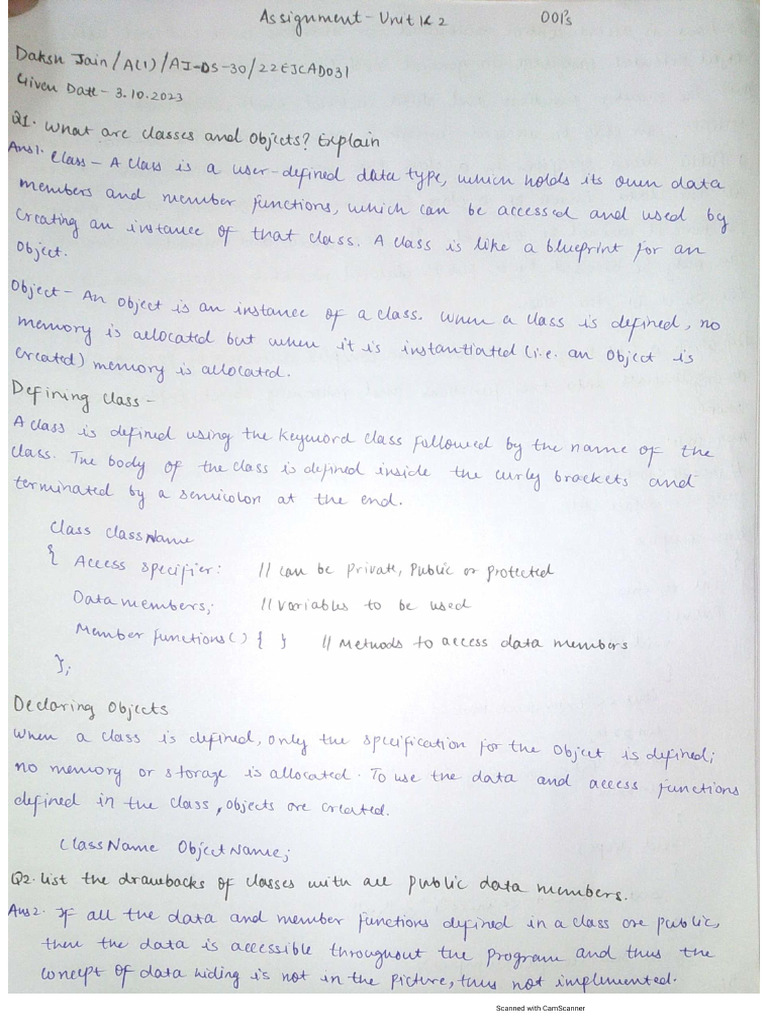 Assignment - Unit 1 & 2 OOP's
Daksh Jain / A(1) / AI-DS-30 / 22EJCAD031
Given Date - 3.10.2023
Q1. What are classes and Objects? Explain
Ans1. Class - A class is a user-defined data type, which holds its own data
members and member functions, which can be accessed and used by
creating an instance of that class. A class is like a blueprint for an
Object.
Object - An Object is an instance of a class. When a class is defined, no
memory is allocated but when it is instantiated (i.e. an Object is
created) memory is allocated.
Defining Class -
A class is defined using the keyword class followed by the name of the
class. The body of the class is defined inside the curly brackets and
terminated by a semicolon at the end.
Class ClassName
{ Access specifier: // can be private, public or protected
Data members; // variables to be used
Member functions() { } // Methods to access data members
};
Declaring Objects
When a class is defined, only the specification for the Object is defined;
no memory or storage is allocated. To use the data and access functions
defined in the class, objects are created.
ClassName ObjectName;
Q2. List the drawbacks of classes with all public data members.
Ans2. If all the data and member functions defined in a class are public,
then the data is accessible throughout the program and thus the
concept of data hiding is not in the picture, thus not implemented.
Scanned with CamScanner